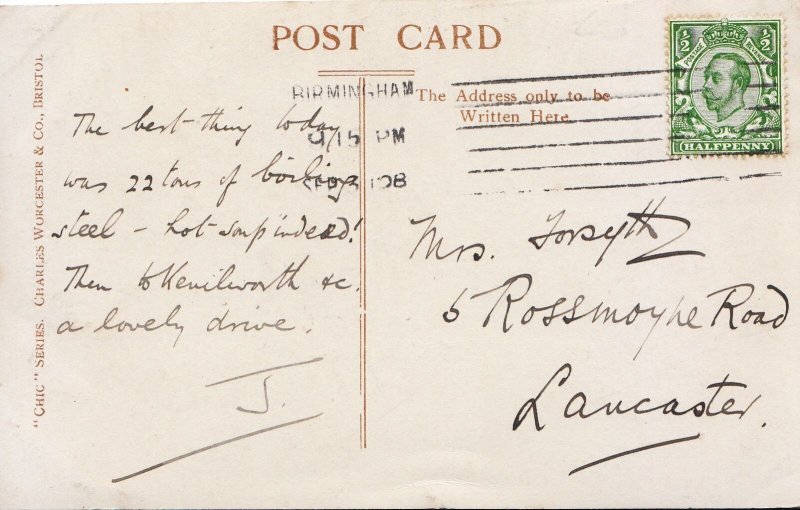 POST CARD
BIRMINGHAM
9 15 PM
The Address only to be
Written Here.
½ ½
POSTAGE REVENUE
HALFPENNY
"CHIC" SERIES. CHARLES WORCESTER & CO., BRISTOL
The best thing today
was 22 tons of boiling
steel – hot soup indeed!
Then to Kenilworth &c.
a lovely drive.
J.
Mrs. Forsyth
6 Rossmoyne Road
Lancaster.